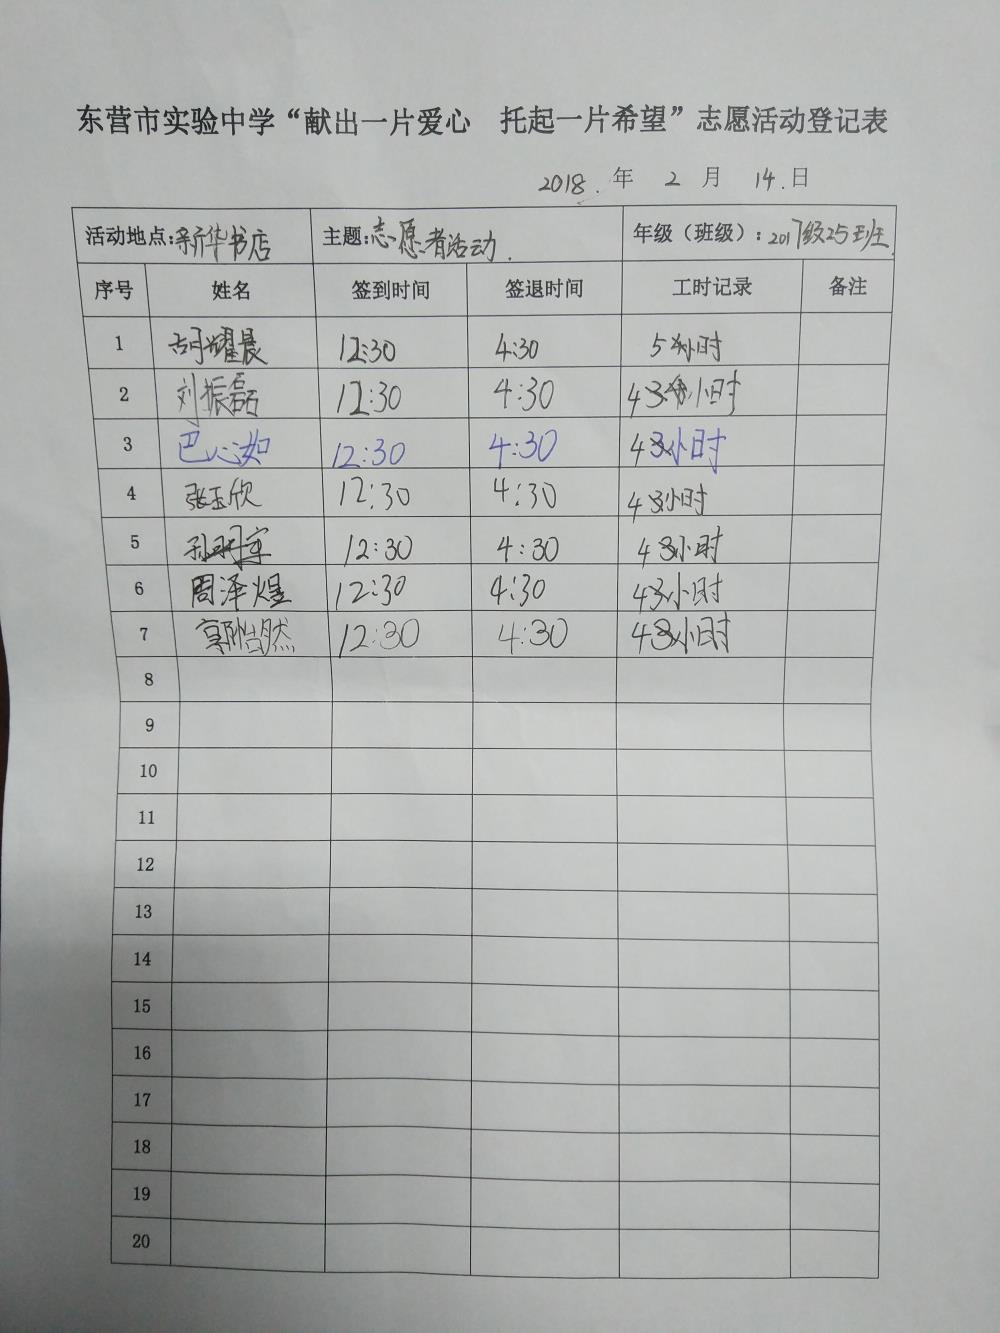 东营市实验中学“献出一片爱心 托起一片希望”志愿活动登记表
2018.年 2 月 14.日
活动地点:新华书店 主题:志愿者活动. 年级（班级）：2017级25班
序号 姓名 签到时间 签退时间 工时记录 备注
1 胡耀晨 12:30 4:30 5小时
2 刘振磊 12:30 4:30 4小时
3 巴心如 12:30 4:30 4小时
4 张玉欣 12:30 4:30 4小时
5 12:30 4:30 4小时
6 周泽煜 12:30 4:30 4小时
7 郭怡然 12:30 4:30 4小时
8
9
10
11
12
13
14
15
16
17
18
19
20